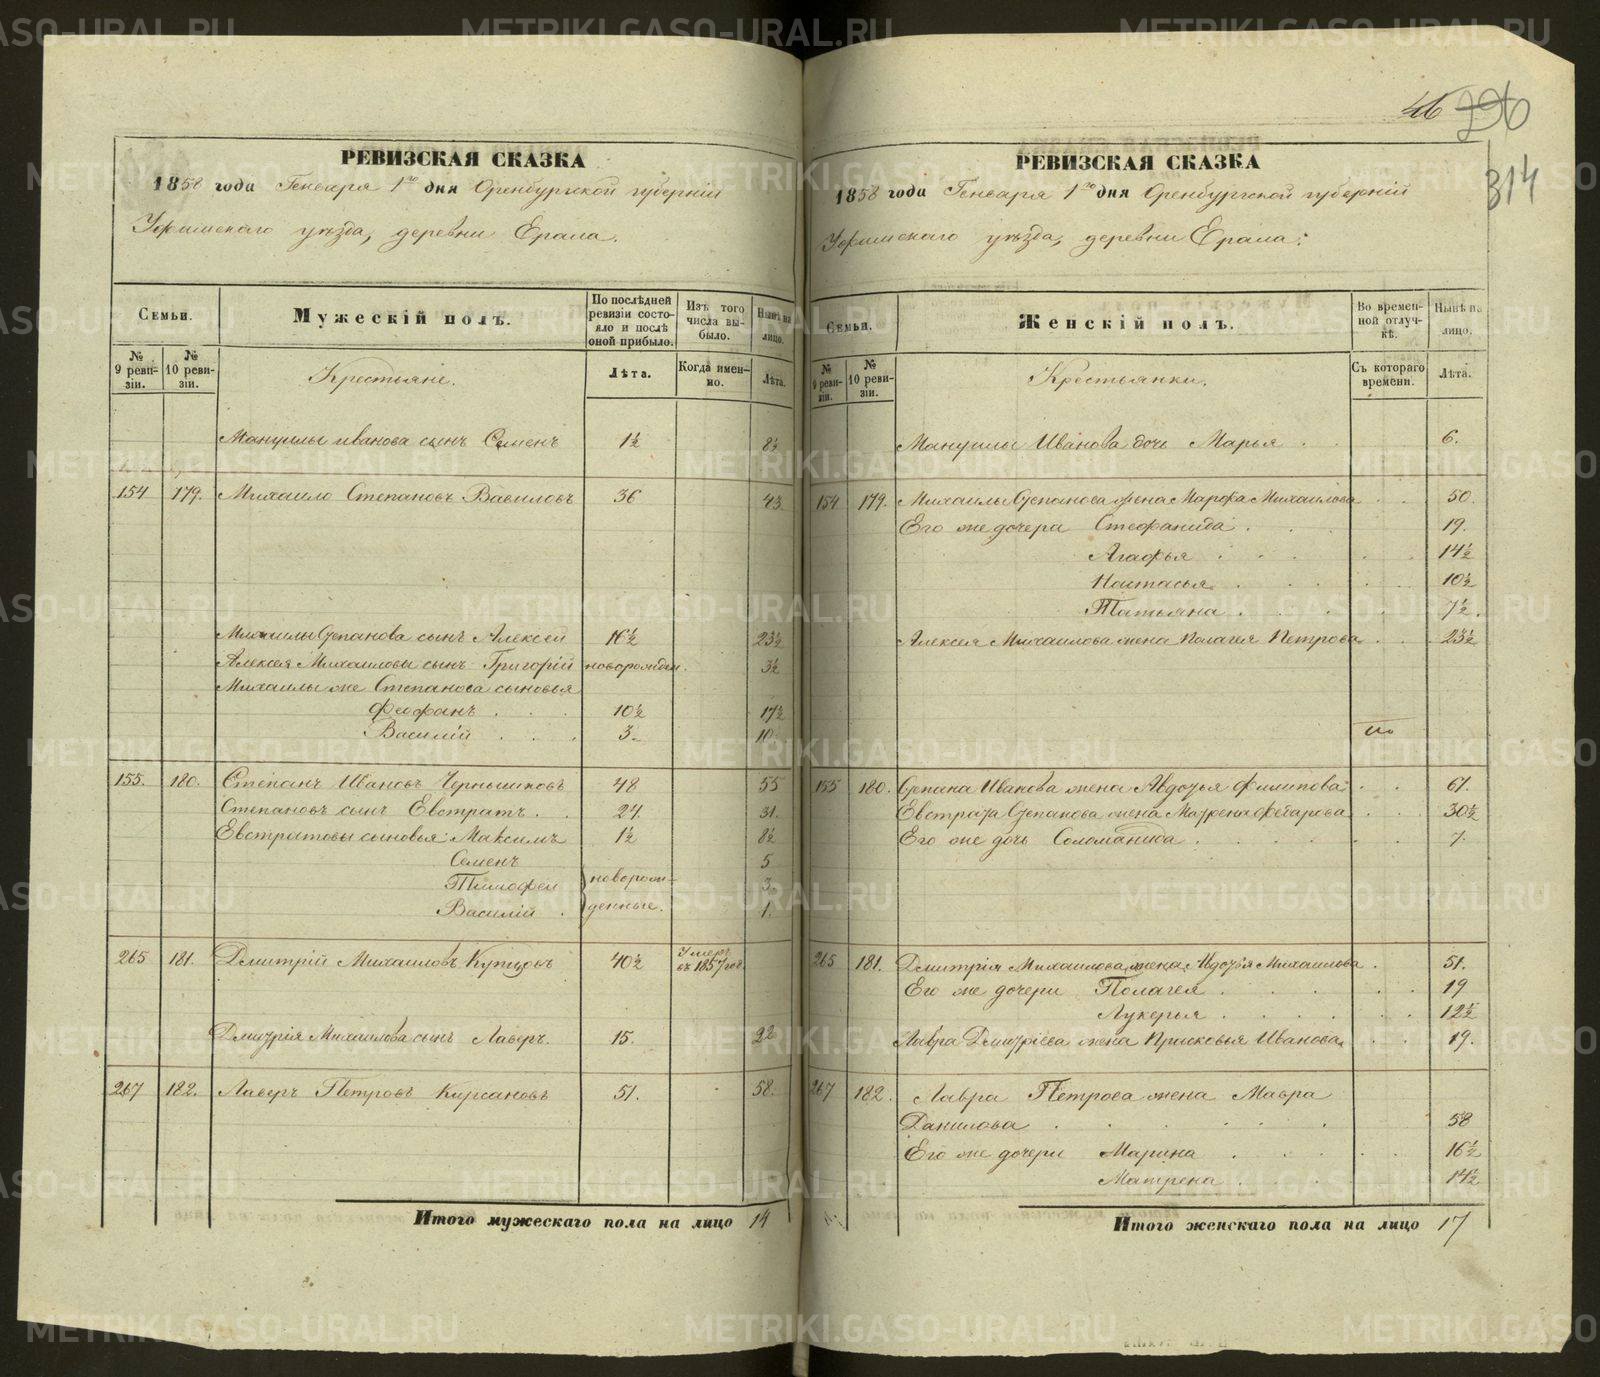 46 296
314
РЕВИЗСКАЯ СКАЗКА
1858 года Генваря 1го дня Оренбургской губерніи
Уфимскаго уѣзда, деревни Ерала.
Семьи.
Мужескій полъ.
По послѣдней ревизіи состояло и послѣ оной прибыло.
Изъ того числа выбыло.
Нынѣ на лицо.
№ 9 ревизіи.
№ 10 ревизіи.
Крестьяне.
Лѣта.
Когда именно.
Лѣта.
Мануилы Иванова сынъ Семенъ 1½ 8½
154 179. Михаило Степановъ Вавиловъ 36 43
Михаилы Степанова сынъ Алексей 16½ 23½
Алексея Михаиловы сынъ Григорій новорожден. 3½
Михаилы же Степанова сыновья
Феофанъ . . . 10½ 17½
Василій . . . 3. 10.
155. 180. Степанъ Ивановъ Чернышковъ 48 55
Степановъ сынъ Евстратъ . . 24 31.
Евстратовы сыновья: Максимъ 1½ 8½
Семенъ 5
Тимофей новорож- 3
Василій . денные. 1.
265 181. Дмитрій Михаиловъ Купцовъ 40½ Умеръ въ 1857 год.
Дмитрія Михаилова сынъ Лаверъ. 15. 22
267 182. Лаверъ Петровъ Кирсановъ 51. 58.
Итого мужескаго пола на лицо 14
РЕВИЗСКАЯ СКАЗКА
1858 года Генваря 1го дня Оренбургской губерніи
Уфимскаго уѣзда, деревни Ерала.
Семьи.
Женскій полъ.
Во временной отлучкѣ.
Нынѣ на лицо.
№ 9 ревизіи.
№ 10 ревизіи.
Крестьянки.
Съ котораго времени.
Лѣта.
Мануилы Иванова дочь Марья . . 6.
154 179. Михаилы Степанова жена Марфа Михаилова . . 50.
Его же дочери Стефанида . . . 19.
Агафья . . . 14½
Настасья . . . 10½
Татьяна . . . 7½.
Алексея Михаилова жена Полагея Петрова . . 23½
155 180. Степана Иванова жена Авдотья Филипова . . 61.
Евстрата Степанова жена Матрена Федарова . . 30½
Его же дочь Соломанида . . . 7.
265 181. Дмитрія Михаилова жена Авдотья Михаилова . 51.
Его же дочери Полагея . . . 19
Лукерья . . . 12½
Лавра Дмитріева жена Прасковья Иванова . . 19.
267 182. Лавра Петрова жена Мавра
Данилова . . . 58
Его же дочери Марина . . . 16½
Матрена . . . 14½
Итого женскаго пола на лицо 17
METRIKI.GASO-URAL.RU